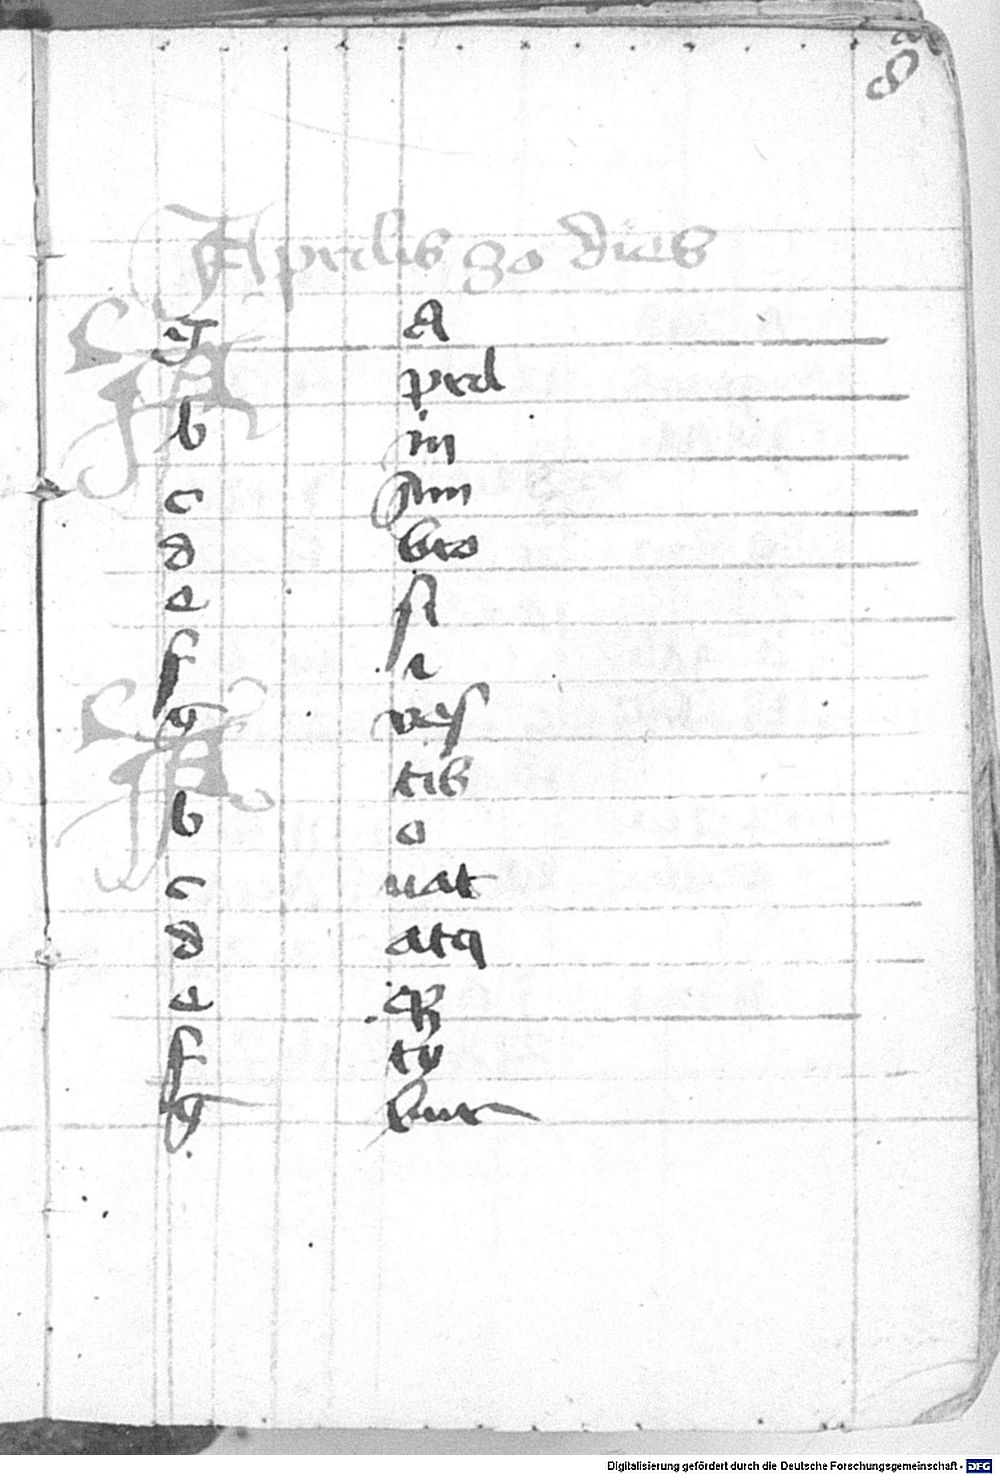 8
Aprilis 30 dies
A
pril
b in
c Am
d bro
e si
f i
g ves
A tib
b o
c uat
d atq
e
f ty
g bur
Digitalisierung gefördert durch die Deutsche Forschungsgemeinschaft - DFG